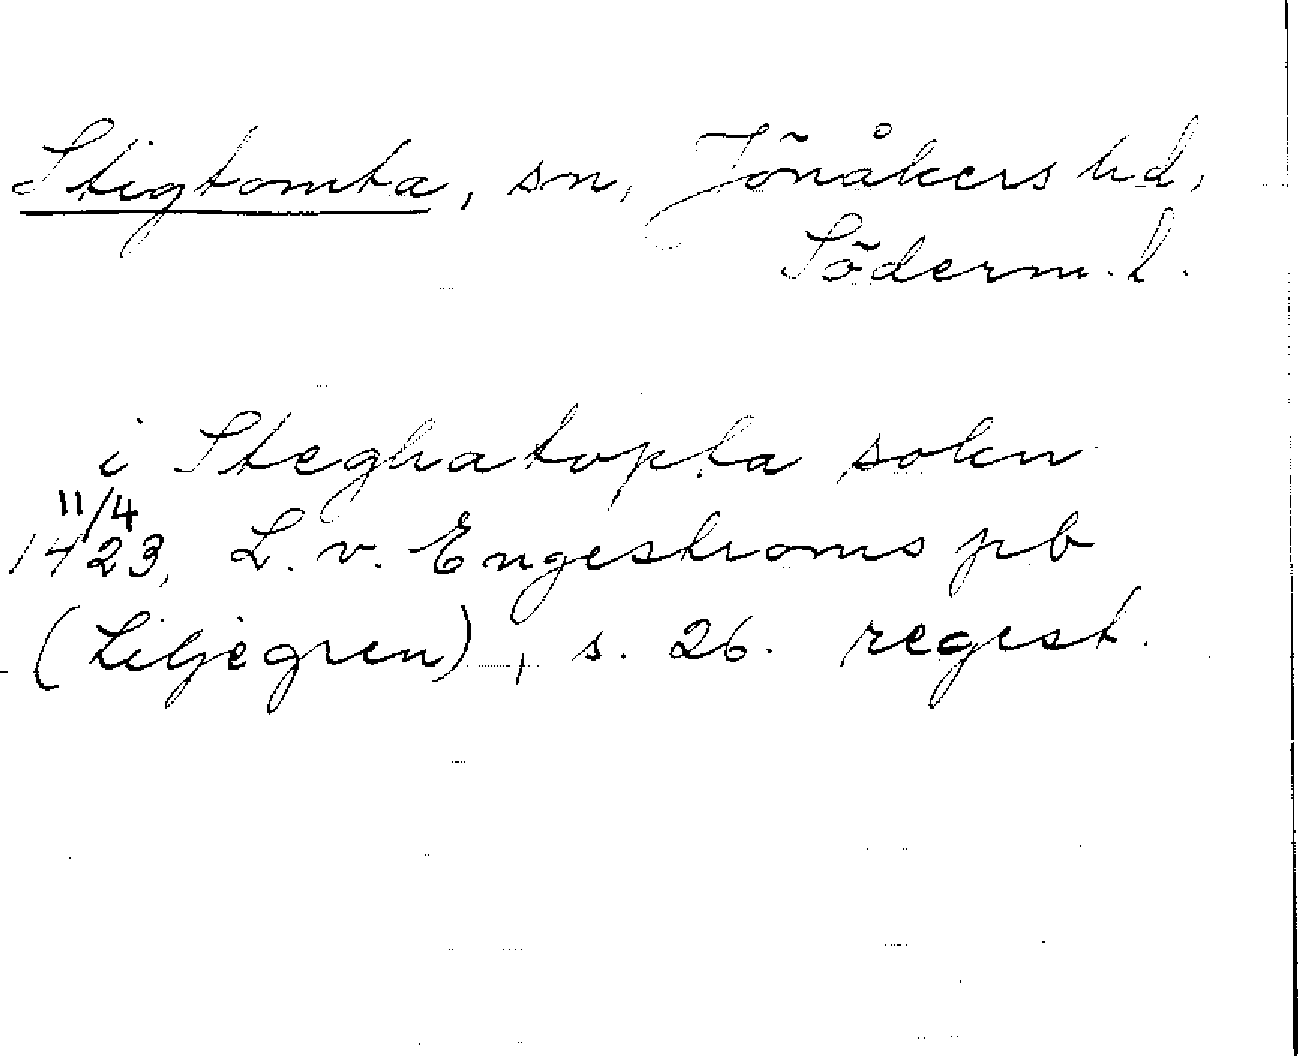 Stigtomta, sn, Jönåkers hd,
Söderm. l.
i Steghatopta sokn
11/4
1423, L. v. Engestroms pb
(Liljegren), s. 26. regest.